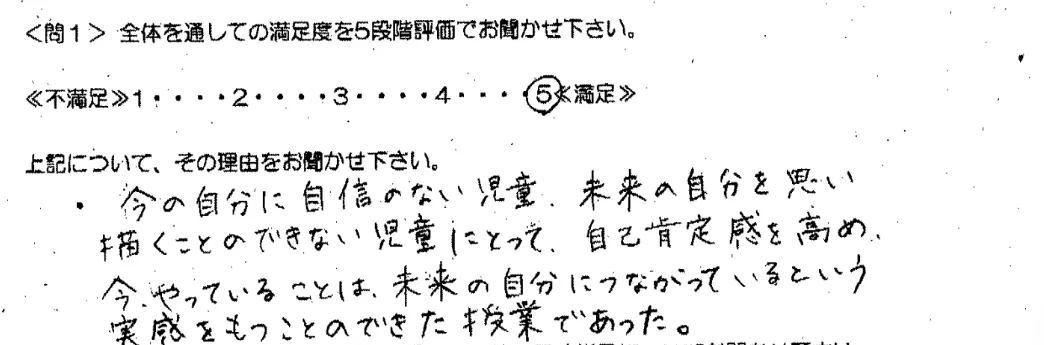 <問1> 全体を通しての満足度を5段階評価でお聞かせ下さい。
≪不満足≫1・・・・2・・・・3・・・・4・・・・5≪満足≫
上記について、その理由をお聞かせ下さい。
・今の自分に自信のない児童、未来の自分を思い
描くことのできない児童にとって、自己肯定感を高め、
今、やっていることは、未来の自分につながっているという
実感をもつことのできた授業であった。